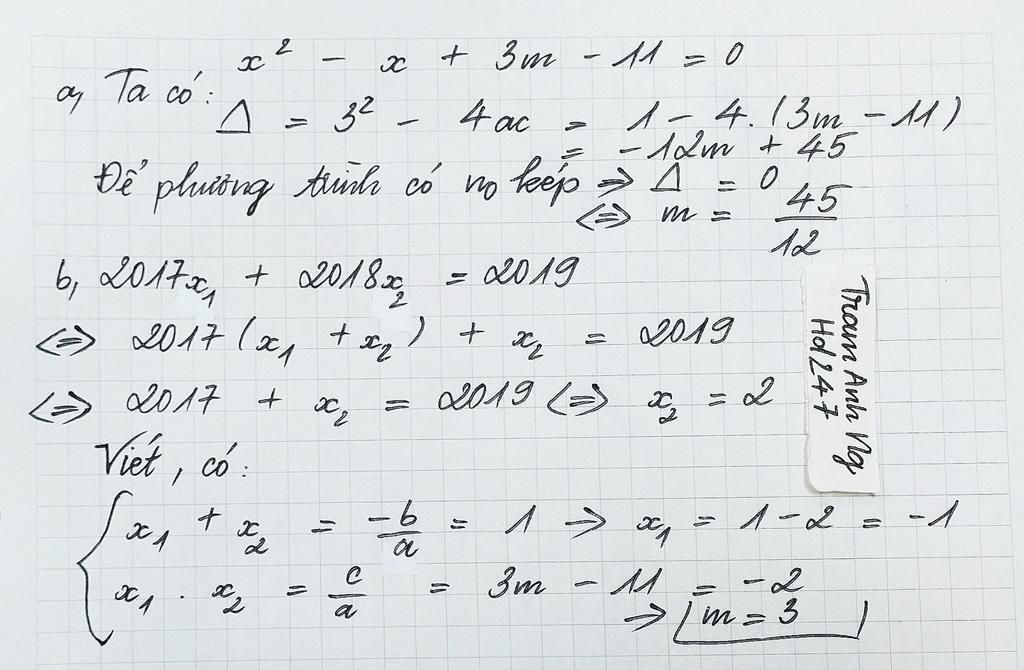 x² - x + 3m - 11 = 0
a, Ta có:
Δ = 3² - 4ac = 1 - 4.(3m - 11)
= -12m + 45
Để phương trình có no kép => Δ = 0
<=> m = 45/12
b, 2017x₁ + 2018x₂ = 2019
<=> 2017(x₁ + x₂) + x₂ = 2019
<=> 2017 + x₂ = 2019 <=> x₂ = 2
Viét, có:
x₁ + x₂ = -b/a = 1 -> x₁ = 1 - 2 = -1
x₁ . x₂ = c/a = 3m - 11 = -2
-> m = 3
Tram Anh Ng
Hd247